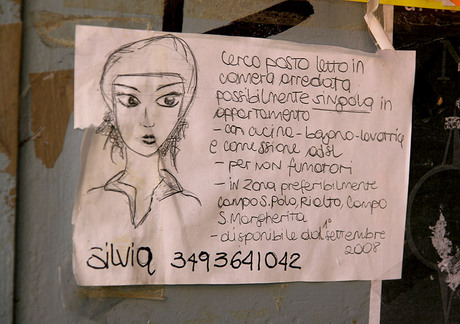 cerco posto letto in
camera arredata
possibilmente singola in
appartamento
- con cucina - bagno - lavatrice
e connessione adsl
- per non fumatori
- in zona preferibilmente
campo S. Polo, Rialto, Campo
S. Margherita
- disponibile dal 1° settembre
2008
silvia 3493641042